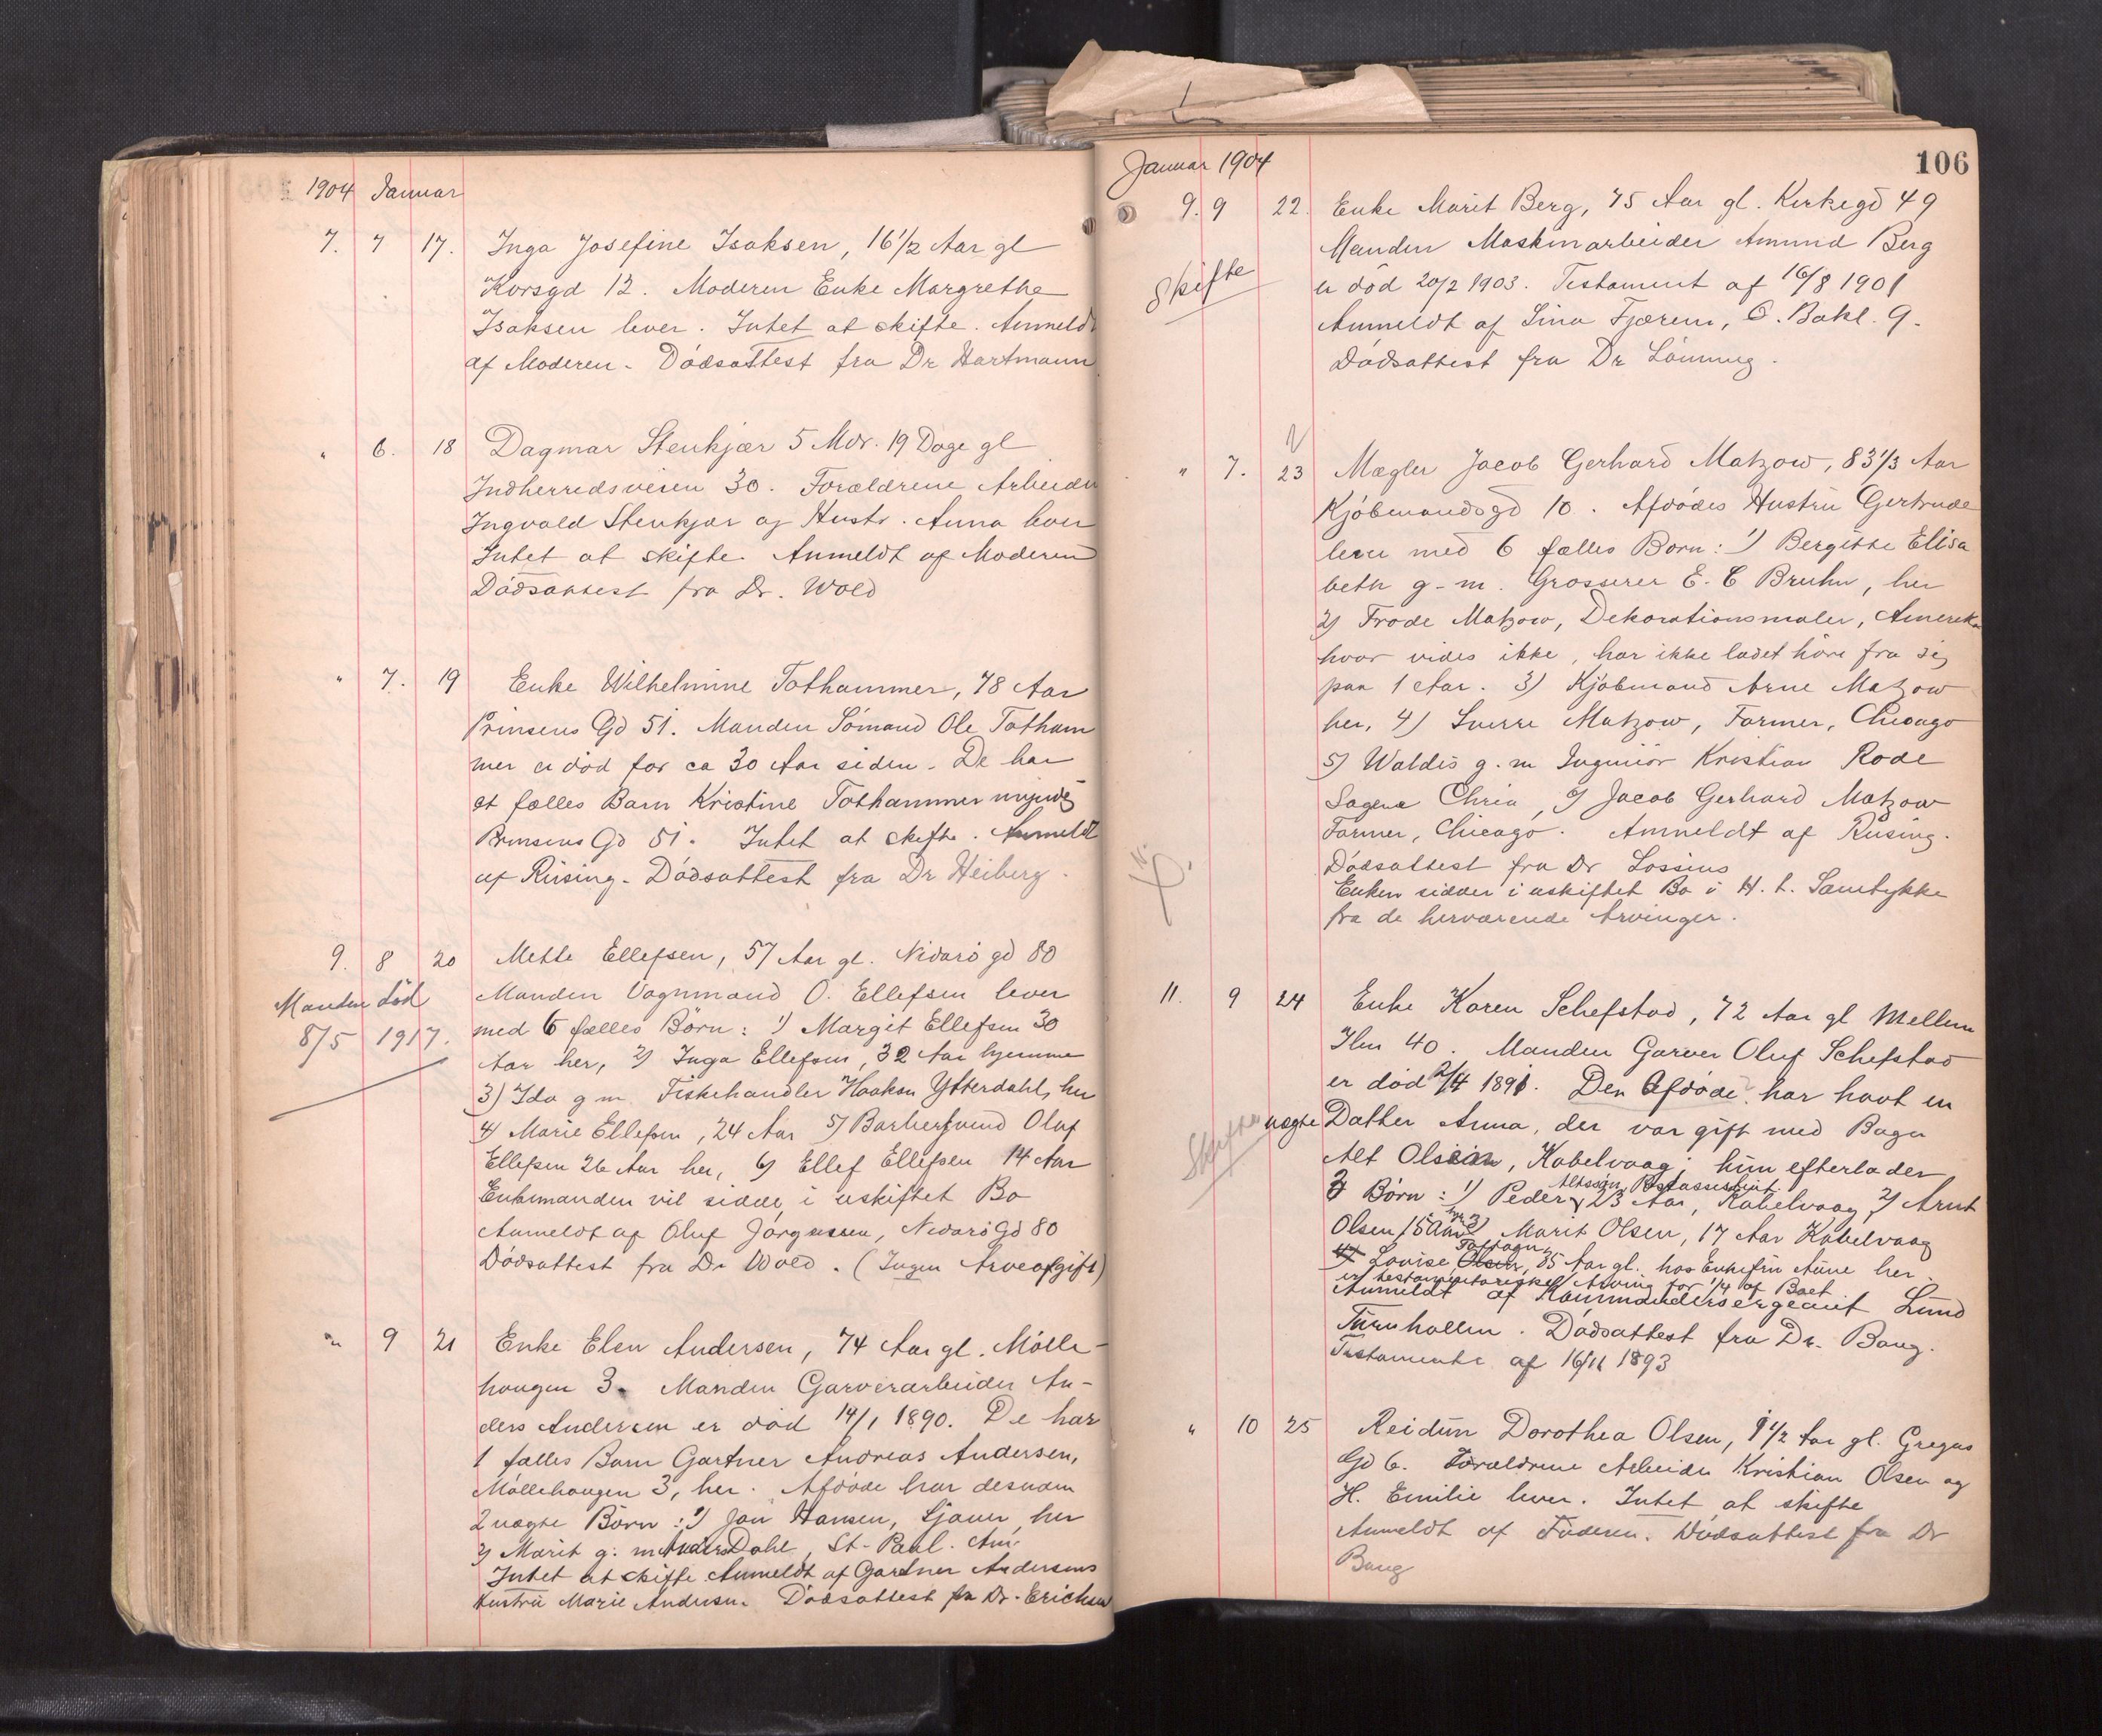 1904 Januar
7. 7 17. Inga Josefine Isaksen, 16 1/2 Aar gl
Korsgd 12. Moderen Enke Margrethe
Isaksen lever. Intet at skifte. Anmeldt
af Moderen - Dödsattest fra Dr Hartmann
" 6. 18 Dagmar Stenkjær 5 Mdr. 19 Dage gl
Indherredsveien 30. Forældrene Arbeider
Ingvald Stenkjær og Hustr. Anna lever
Intet at skifte. Anmeldt af Moderen
Dödsattest fra Dr. Wold
" 7. 19 Enke Wilhelmine Tothammer, 78 Aar
Prinsens Gd 51. Manden Sömand Ole Totham
mer er död for ca 30 Aar siden. De har
et fælles Barn Kristine Tothammer myndig
Prinsens Gd 51. Intet at skifte. Anmeldt
af Rüsing. Dödsattest fra Dr Heiberg.
9. 8 20 Mette Ellefsen, 57 Aar gl. Nidarö gd 80
Manden död
8/5 1917.
Manden Vognmand O. Ellefsen lever
med 6 fælles Börn: 1) Margit Ellefsen 30
Aar her, 2) Inga Ellefsen, 32 Aar hjemme
3) Ida g m. Fiskehandler Haakon Ytterdahl, her
4) Marie Ellefsen, 24 Aar 5) Barbersvend Oluf
Ellefsen 26 Aar her, 6) Ellef Ellefsen 14 Aar
Enkemanden vil sidde i uskiftet Bo
Anmeldt af Oluf Jörgensen, Nidarö Gd 80
Dödsattest fra Dr Wold. (Ingen Arveafgift)
" 9 21 Enke Elen Andersen, 74 Aar gl. Mölle-
haugen 3. Manden Garverarbeider An-
ders Andersen er död 14/1 1890. De har
1 fælles Barn Gartner Andreas Andersen,
Möllehaugen 3, her. Afdöde har desuden
2 uægte Börn: 1) Jon Hansen, Sjauer, her
2) Marit g. m Anders Dahl, St-Paul. Am.
Intet at skifte Anmeldt af Gartner Andersens
Hustrü Marie Andersen. Dödsattest fra Dr. Erichsen
Januar 1904
106
9. 9 22. Enke Marit Berg, 75 Aar gl. Kirkegd 49
Manden Maskinarbeider Amund Berg
Skifte
er död 20/2 1903. Testament af 16/8 1901
Anmeldt af Lina Fjærem, O. Bakl. 9.
Dödsattest fra Dr Lönning.
" 7. 23 Mægler Jacob Gerhard Matzow, 83 1/3 Aar
Kjöbmandsgd 10. Afdödes Hustrü Gertrude
lever med 6 fælles Born: 1) Bergitte Elisa
beth g. m. Grosserer E. C Bruhn, her
2) Frode Matzow, Dekorationsmaler, Amerika
hvor vides ikke, har ikke ladet höre fra sig
paa 1 Aar. 3) Kjöbmand Arne Matzow
her, 4) Sverre Matzow, Farmer, Chicago
5) Waldis g. m Ingeniör Kristian Rode
Sagene Chria, 6) Jacob Gerhard Matzow
Farmer, Chicago. Anmeldt af Rüsing.
Dödsattest fra Dr Lossius
Enken sidder i uskiftet Bo i H. t. Samtykke
fra de herværende Arvinger.
11. 9 24 Enke Karen Schefstad, 72 Aar gl Mellem
Ilen 40. Manden Garver Oluf Schefstad
er död 2/4 1891. Den Afdöde har havt en
Skifte
uægte Datter Anna, der var gift med Bager
Alt Olsen, Kabelvaag; hün efterlader
3 Börn: 1) Peder Altssön, Postassistent 23 Aar, Kabelvaag, 2) Arnt
Olsen 15 Aar 3) Marit Olsen, 17 Aar Kabelvaag
4) Lovise Olsen, 35 Aar gl. hos Enkefrü Aune her
er testamentarisk Arving for 1/4 af Boet
Anmeldt af Kommandersergeant Lünd
Türnhallen. Dödsattest fra Dr. Baug.
Testamente af 16/11 1893
" 10 25 Reidün Dorothea Olsen, 1 1/2 Aar gl. Gregus
Gd 6. Forældrene Arbeider Kristian Olsen og
H. Emilie lever. Intet at skifte
Anmeldt af Faderen. Dödsattest fra Dr
Baug